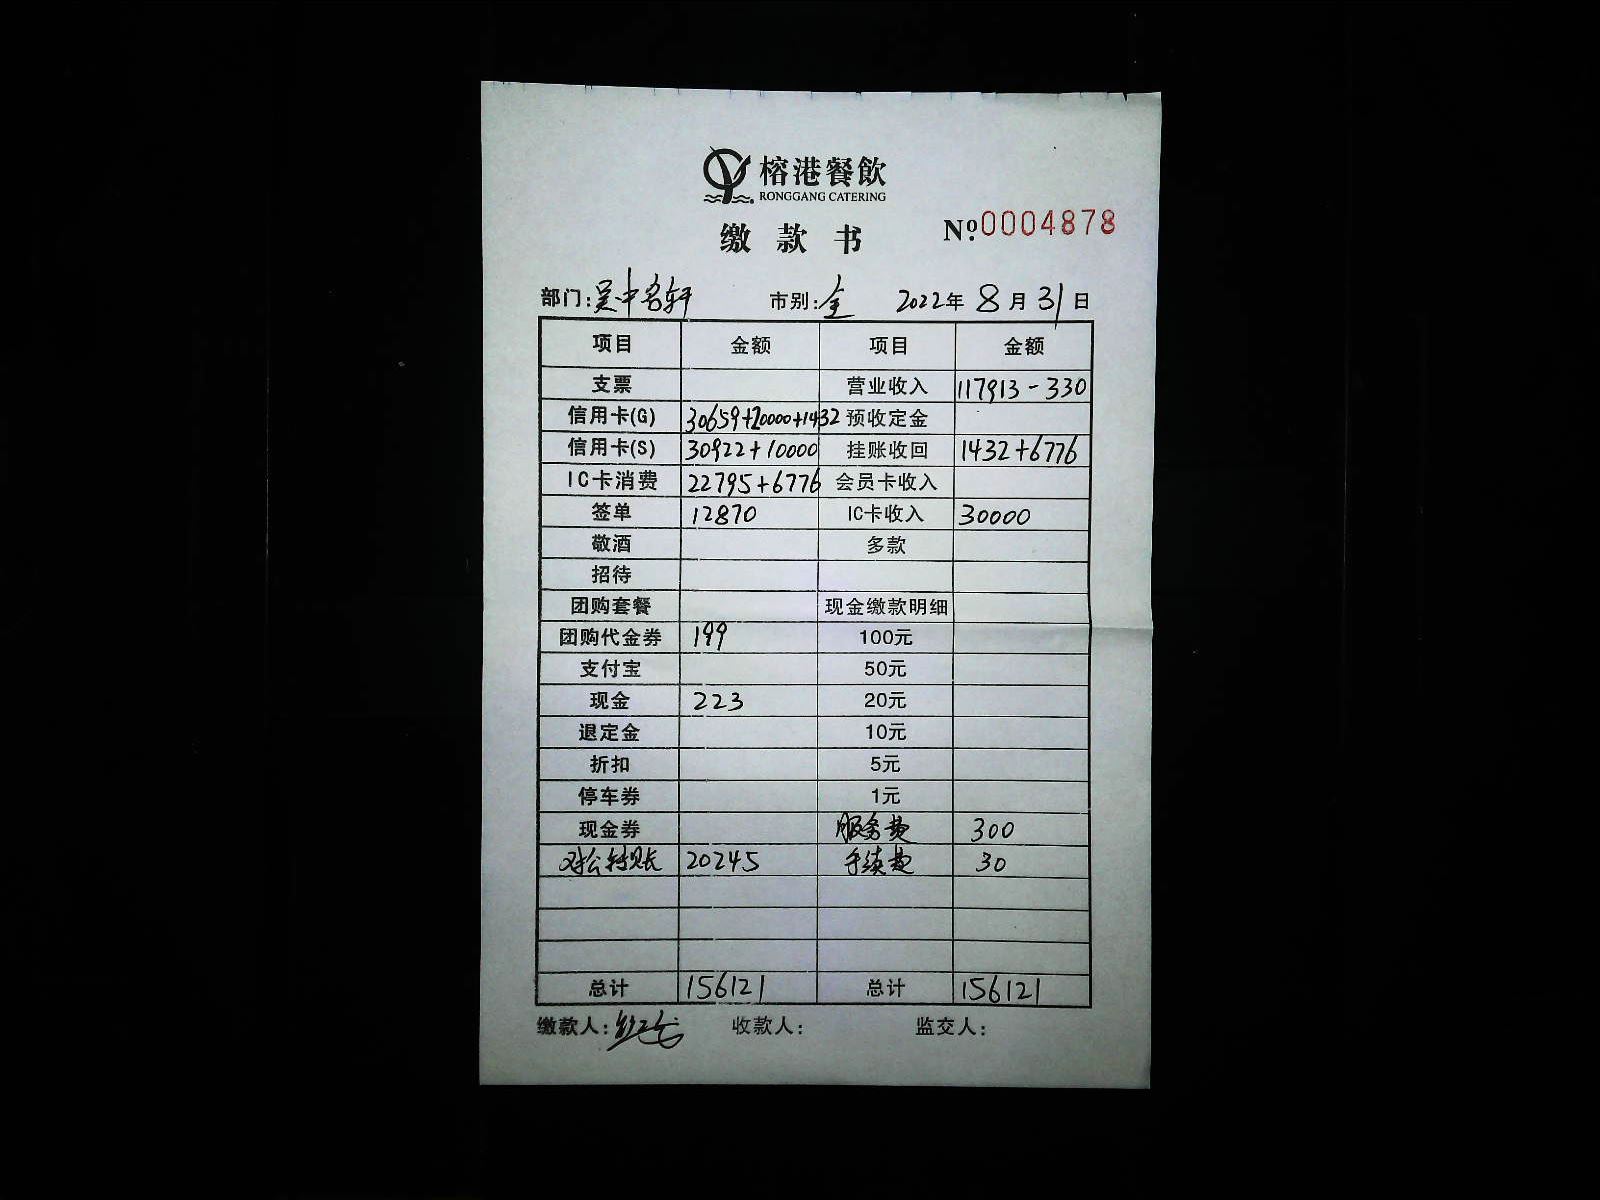 榕港餐飲
RONGGANG CATERING
缴款书 Nº 0004878
部门:吴中名轩 市别:全 2022年8月31日
项目 金额 项目 金额
支票 营业收入 117913-330
信用卡(G) 30659+20000+1432 预收定金
信用卡(S) 30922+10000 挂账收回 1432+6776
IC卡消费 22795+6776 会员卡收入
签单 12870 IC卡收入 30000
敬酒 多款
招待
团购套餐 现金缴款明细
团购代金券 199 100元
支付宝 50元
现金 223 20元
退定金 10元
折扣 5元
停车券 1元
现金券 服务费 300
对公转账 20245 手续费 30
总计 156121 总计 156121
缴款人: 收款人: 监交人: